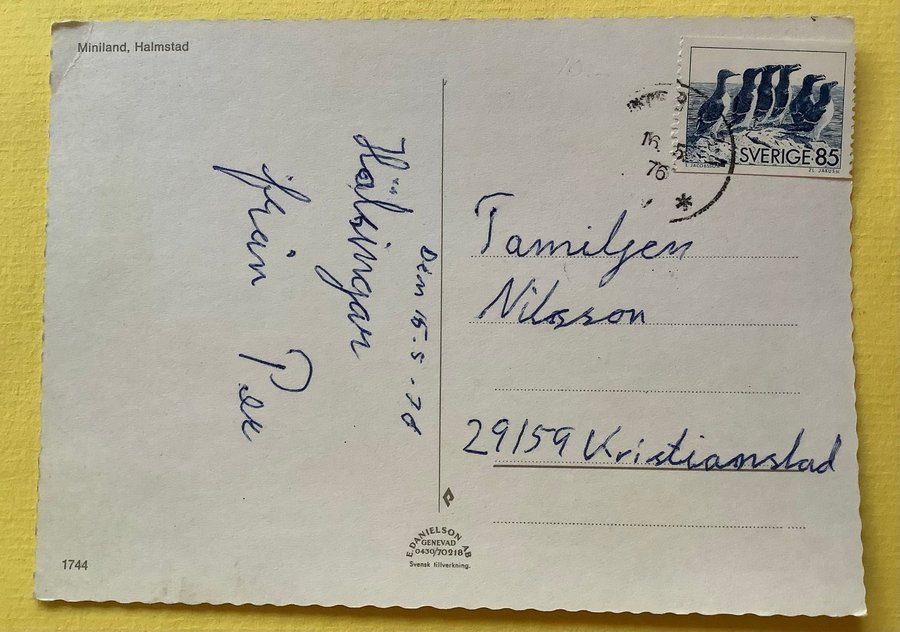 Miniland, Halmstad
SVERIGE 85
16. 5
76
Den 15-5-76
Hälsingar
från Per
Familjen
Nilsson
29159 Kristianstad
E. DANIELSON AB
GENEVAD
0430/70218
Svensk tillverkning.
1744